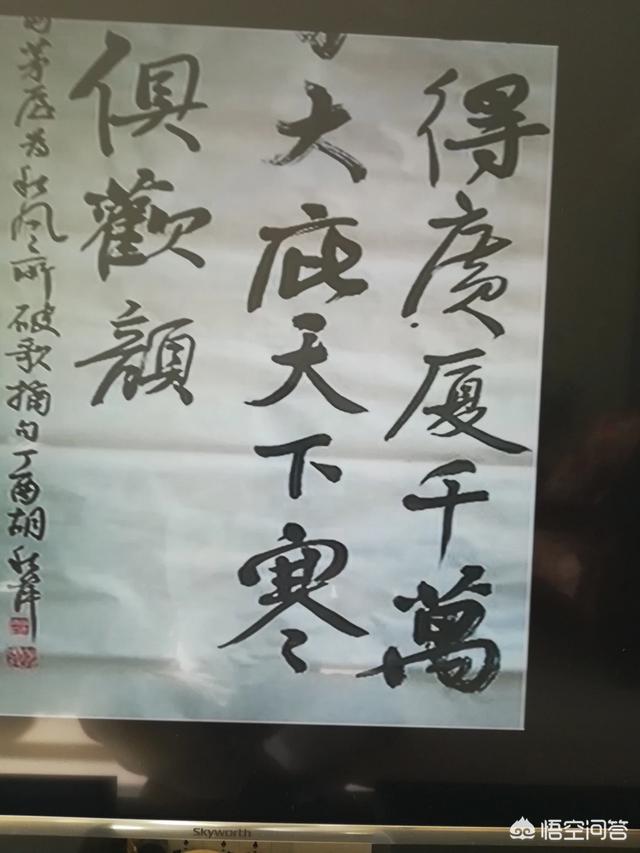 得廣厦千萬
大庇天下寒
俱歡顏
茅屋为秋风所破歌摘句丁酉胡秋萍
Skyworth
悟空问答